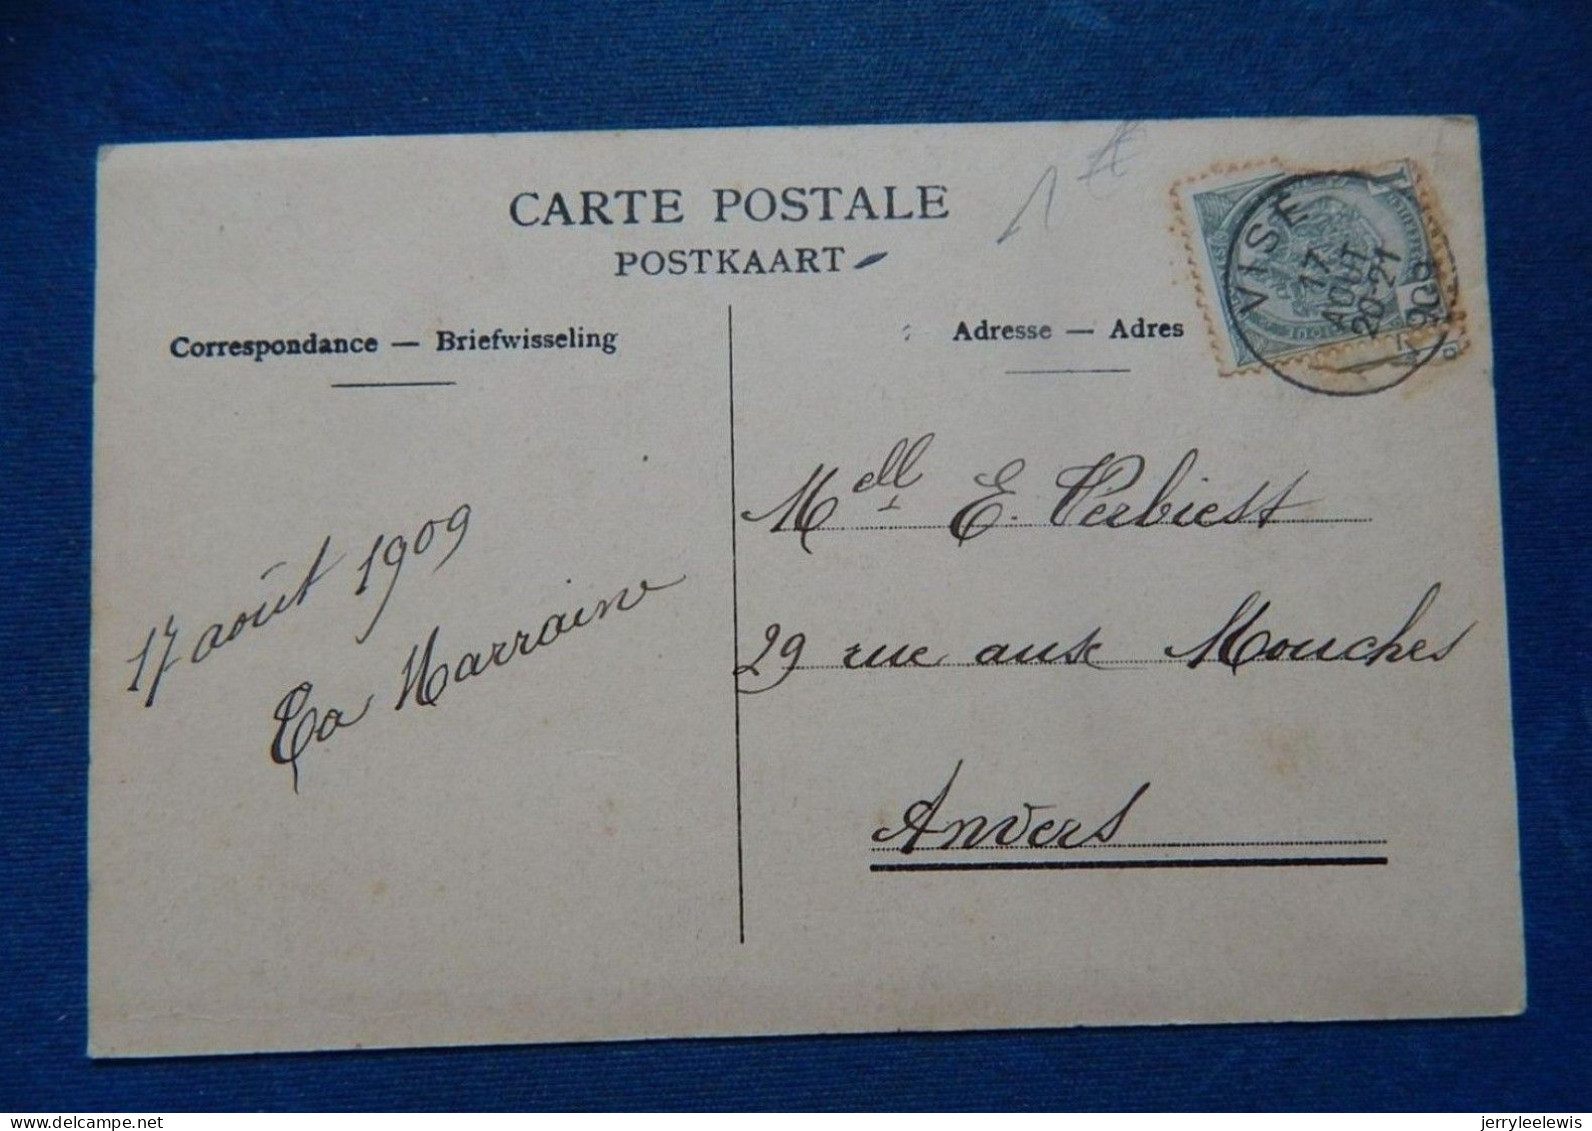 CARTE POSTALE
POSTKAART
Correspondance — Briefwisseling
Adresse — Adres
VISÉ
17
AOUT
20-21
1909
17 août 1909
Ta Marraine
Mell E. Verbiest
29 rue aux Mouches
Anvers
www.delcampe.net
jerryleelewis